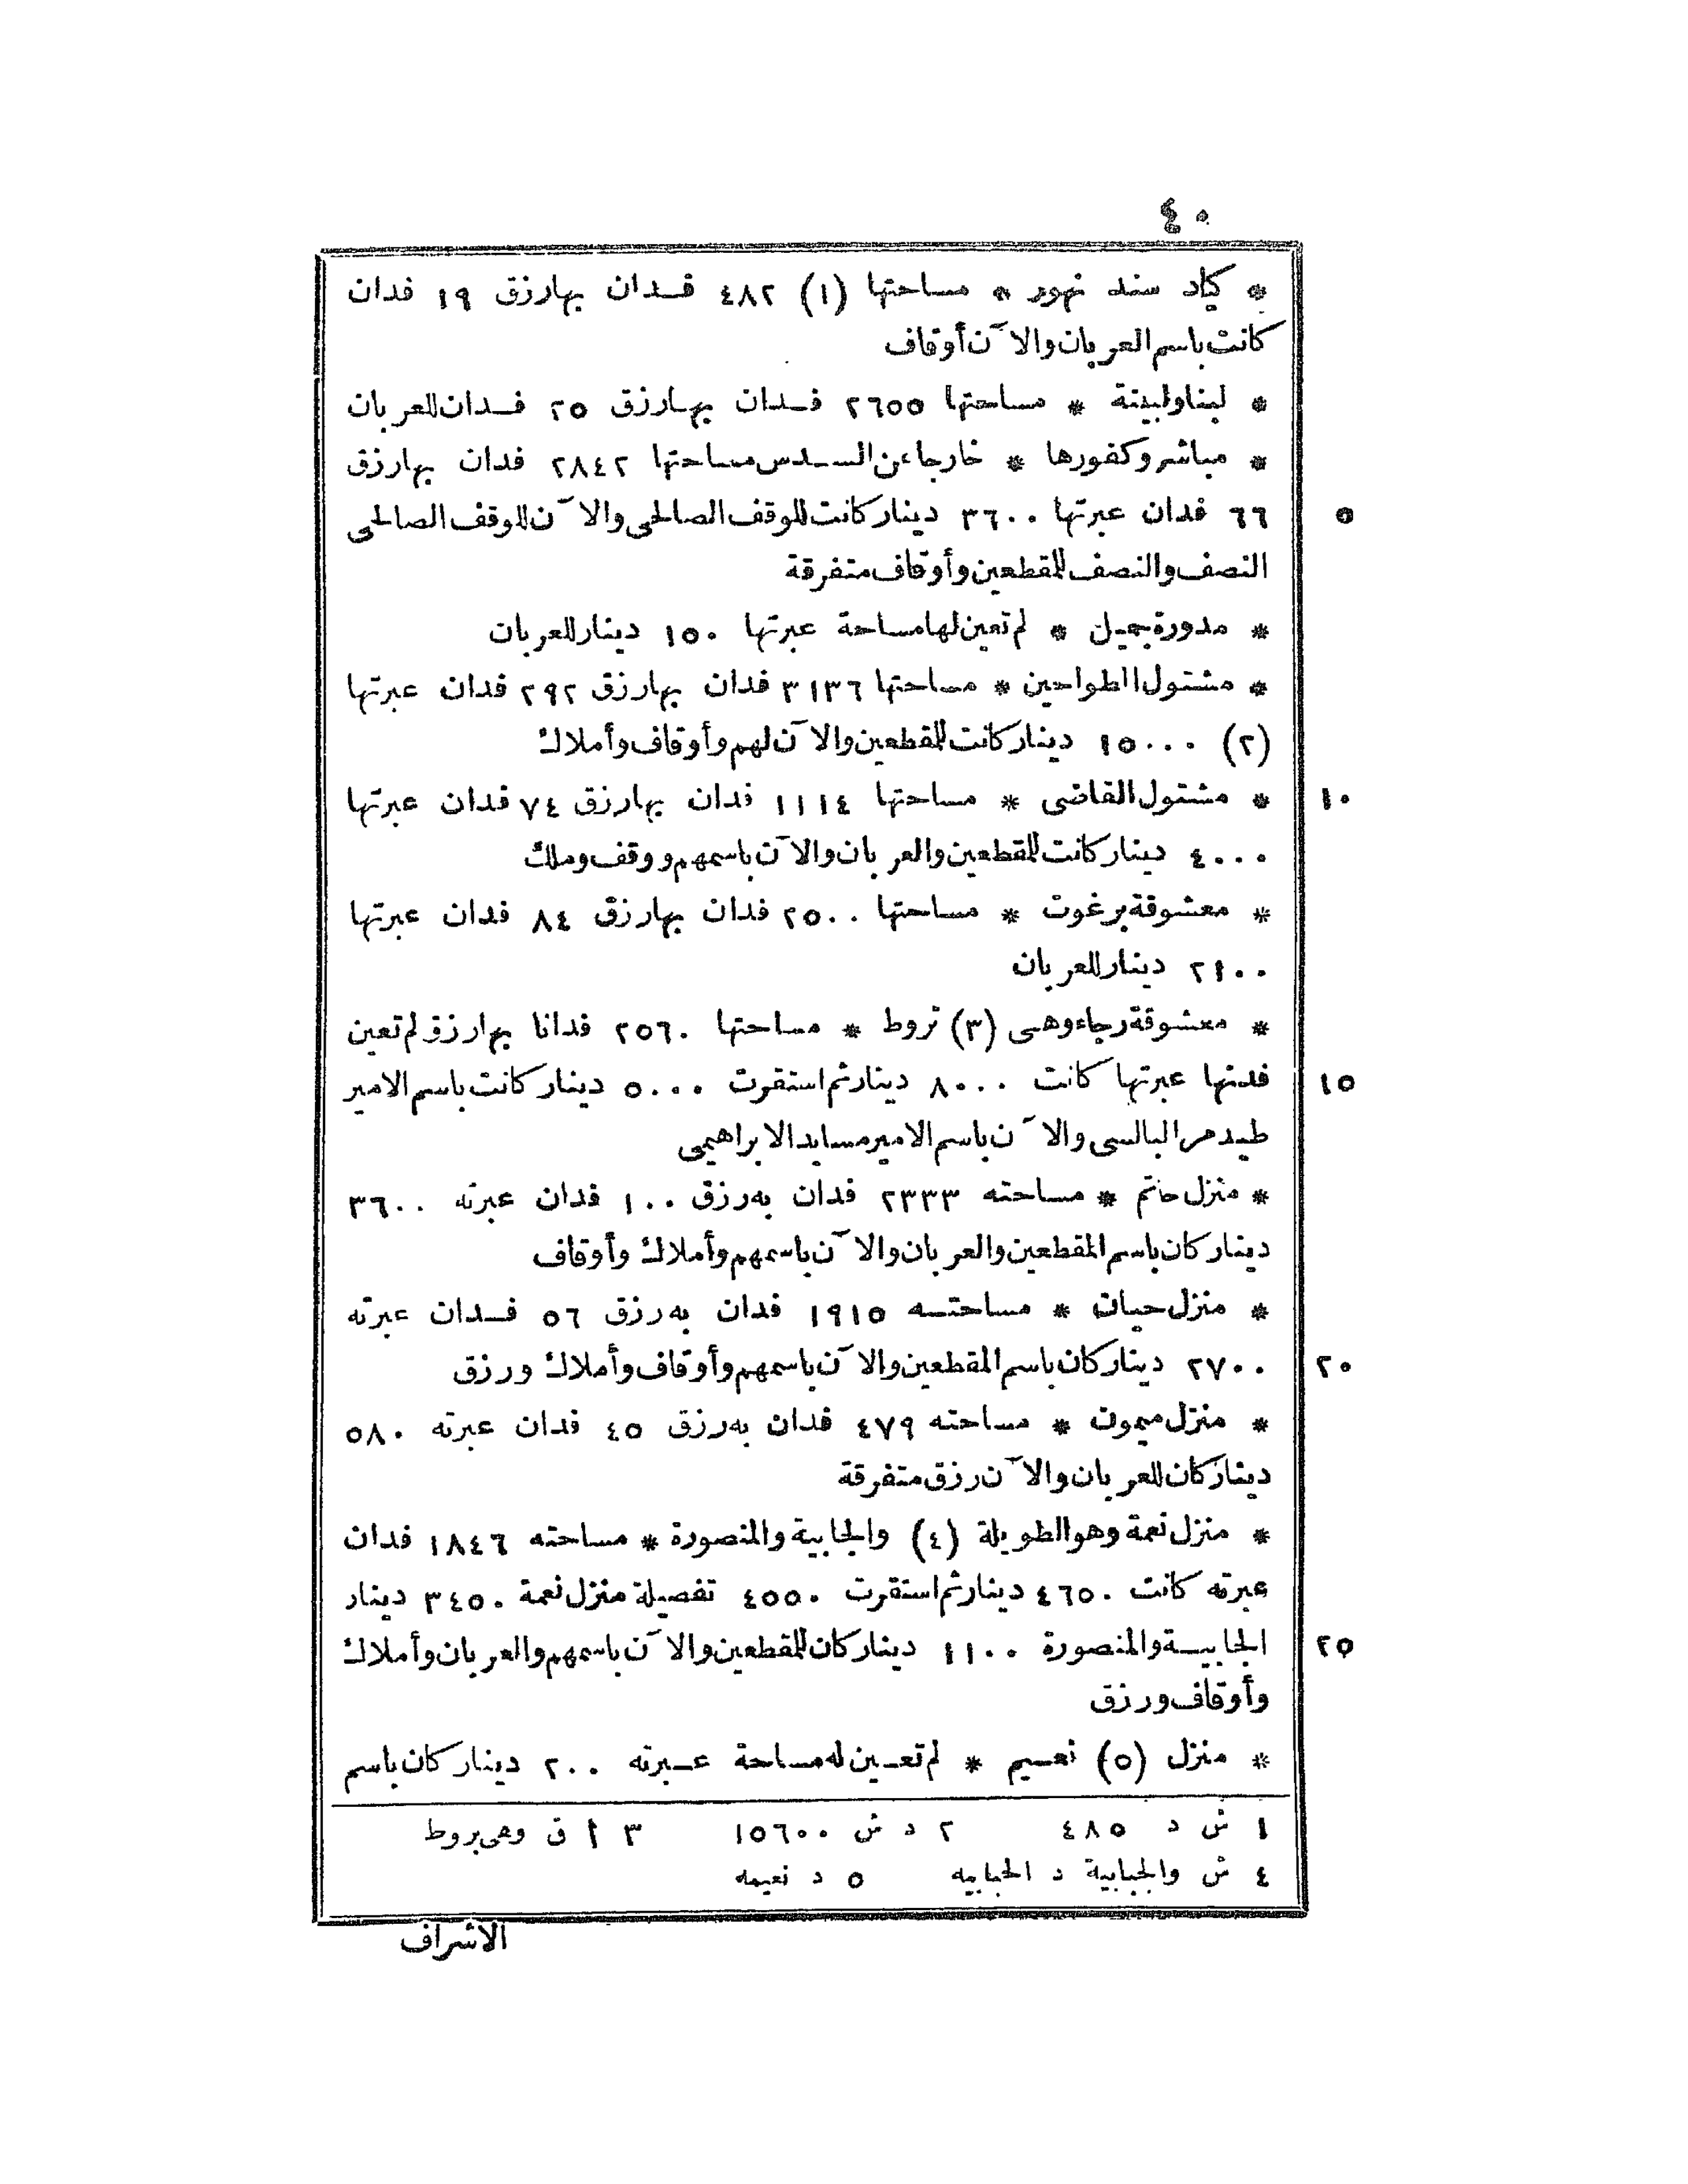 ٤٠
* كياد سند نهور * مساحتها (١) ٤٨٢ فدان بها رزق ١٩ فدان
كانت باسم العربان والآن أوقاف
* لبنا ولبينة * مساحتها ٢٦٥٥ فدان بها رزق ٢٥ فدان للعربان
* مباشر وكفورها * خارجا عن السدس مساحتها ٢٨٤٢ فدان بها رزق
٥ ٦٦ فدان عبرتها ٣٦٠٠ دينار كانت للوقف الصالحى والآن للوقف الصالحى
النصف والنصف للمقطعين وأوقاف متفرقة
* مدورة جميل * لم تعين لها مساحة عبرتها ١٥٠ دينار للعربان
* مشتول الطواحين * مساحتها ٣١٣٦ فدان بها رزق ٢٩٢ فدان عبرتها
(٢) ١٥٠٠٠ دينار كانت للمقطعين والآن لهم وأوقاف وأملاك
١٠ * مشتول القاضى * مساحتها ١١١٤ فدان بها رزق ٧٤ فدان عبرتها
٤٠٠٠ دينار كانت للمقطعين والعربان والآن باسمهم ووقف وملك
* معشوقة برغوت * مساحتها ٢٥٠٠ فدان بها رزق ٨٤ فدان عبرتها
٢١٠٠ دينار للعربان
* معشوقة رجاء وهى (٣) تروط * مساحتها ٢٥٦٠ فدانا بها رزق لم تعين
١٥ فدنها عبرتها كانت ٨٠٠٠ دينار ثم استقرت ٥٠٠٠ دينار كانت باسم الامير
طيدمر البالسى والآن باسم الامير مسايد الابراهيمى
* منزل حاتم * مساحته ٢٣٣٣ فدان به رزق ١٠٠ فدان عبرته ٣٦٠٠
دينار كان باسم المقطعين والعربان والآن باسمهم وأملاك وأوقاف
* منزل حيان * مساحته ١٩١٥ فدان به رزق ٥٦ فدان عبرته
٢٠ ٢٧٠٠ دينار كان باسم المقطعين والآن باسمهم وأوقاف وأملاك ورزق
* منزل ميمون * مساحته ٤٧٩ فدان به رزق ٤٥ فدان عبرته ٥٨٠
دينار كان للعربان والآن رزق متفرقة
* منزل نعمة وهو الطويلة (٤) والجابية والمنصورة * مساحته ١٨٤٦ فدان
عبرته كانت ٤٦٥٠ دينار ثم استقرت ٤٥٥٠ تفصيلة منزل نعمة ٣٤٥٠ دينار
٢٥ الجابية والمنصورة ١١٠٠ دينار كان للمقطعين والآن باسمهم والعربان وأملاك
وأوقاف ورزق
* منزل (٥) نعيم * لم تعين له مساحة عبرته ٢٠٠ دينار كان باسم
١ ش د ٤٨٥ ٢ د ش ١٥٦٠٠ ٣ أ ق وهى بروط
٤ ش والجبابية د الجبابيه ٥ د نعيمه
الاشراف